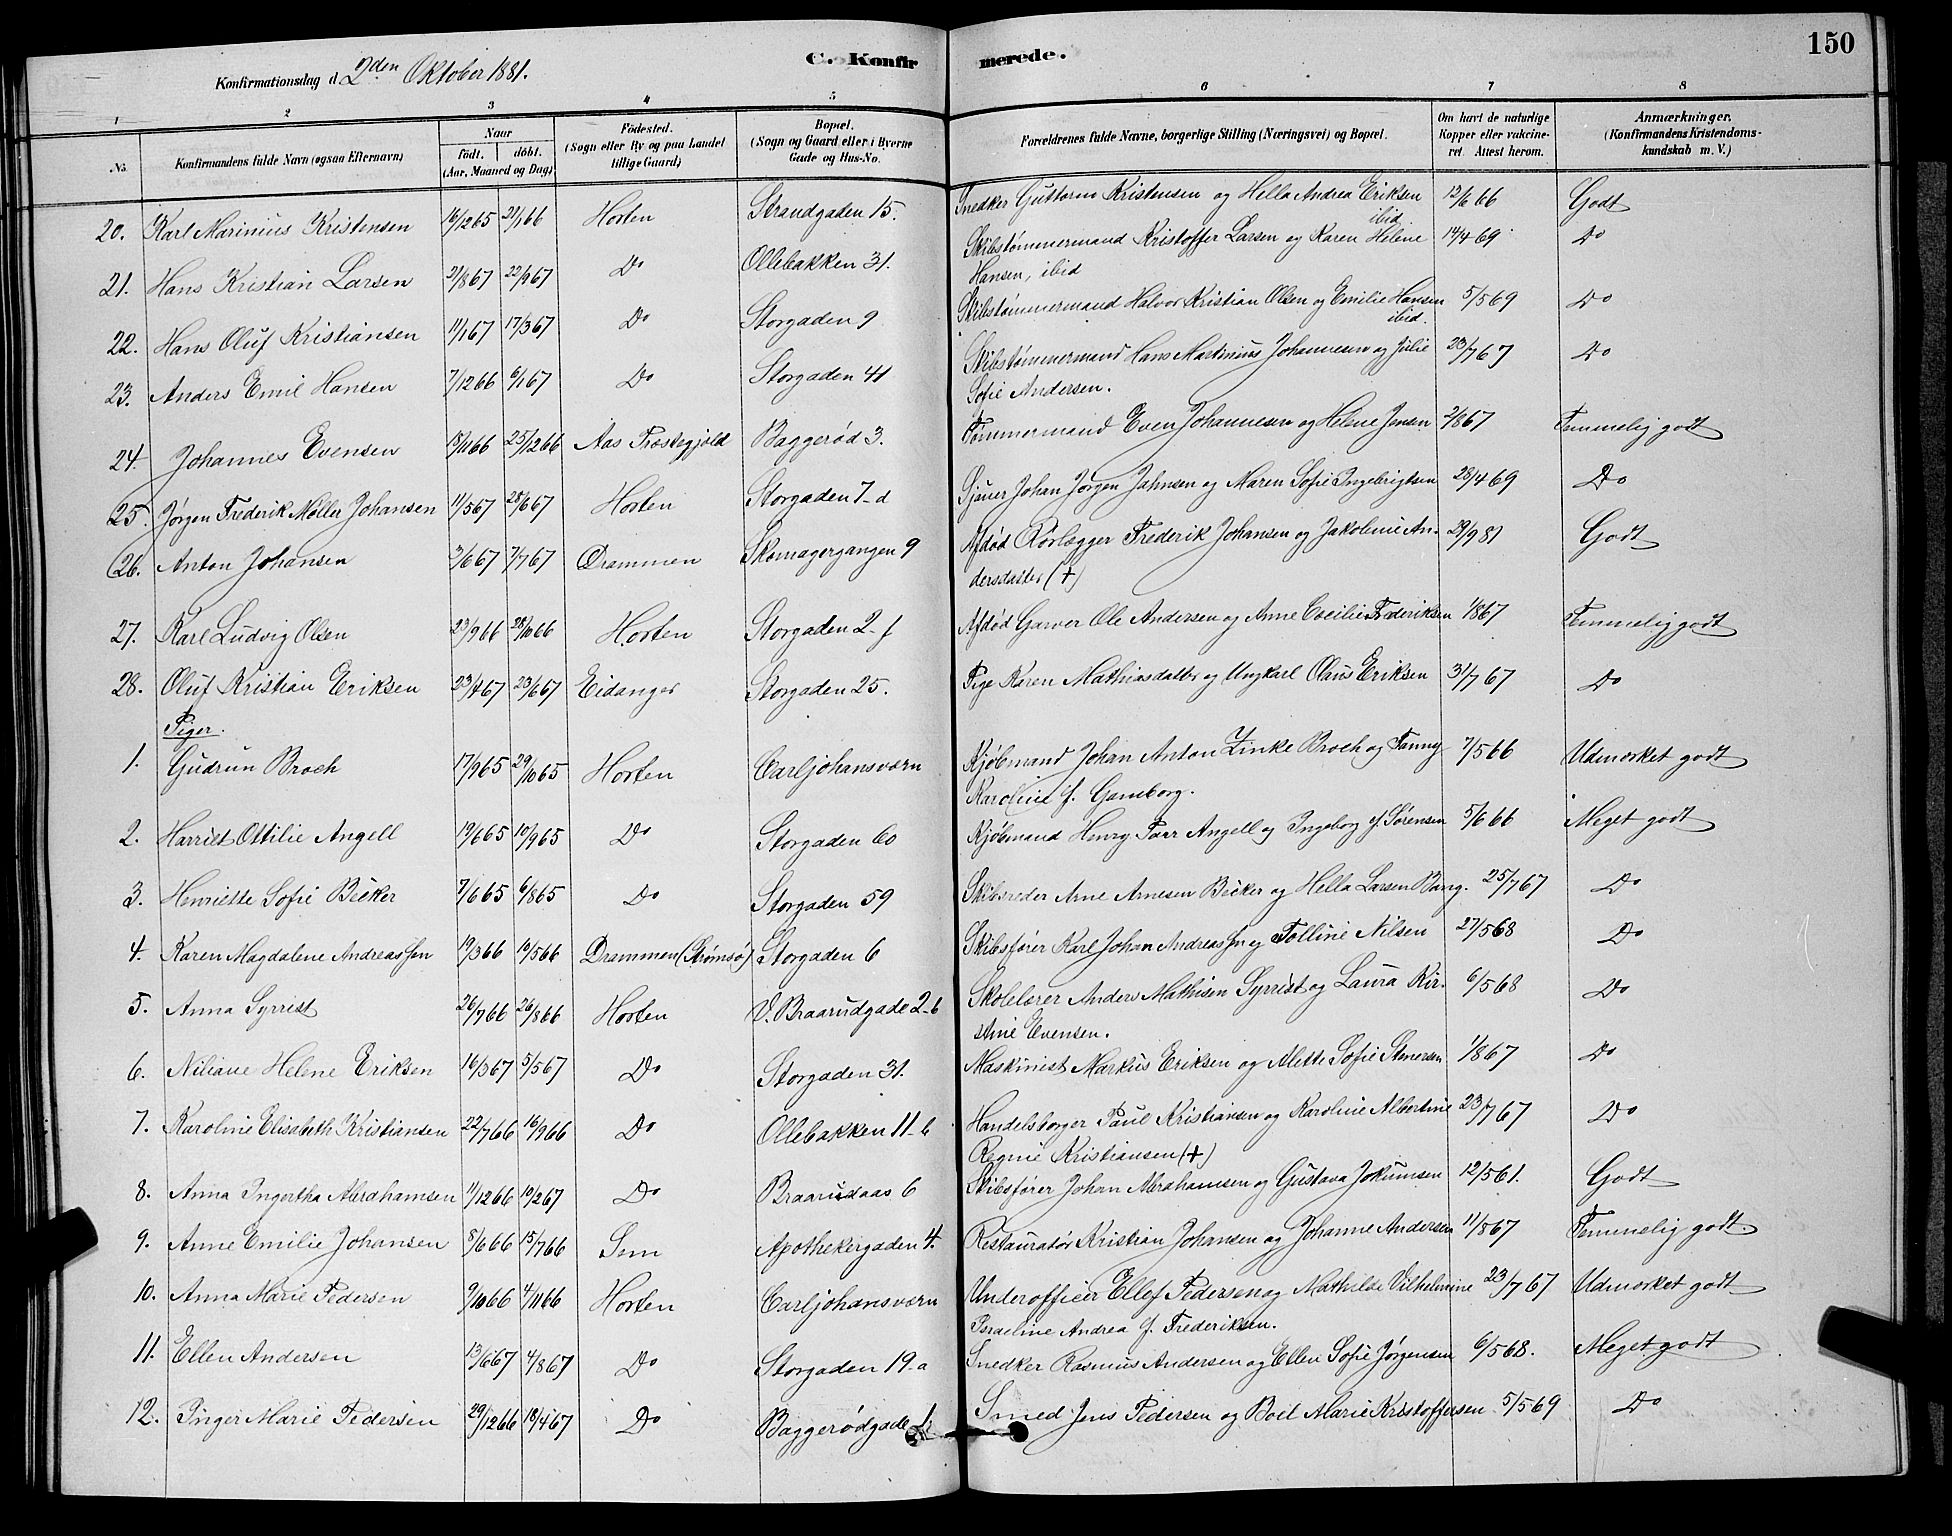 150
Konfirmationsdag d. 2den Oktober 1881.
C. Konfirmerede.
1 2 3 4 5 6 7 8
No. Konfirmandens fulde Navn (ogsaa Efternavn) Naar födt. döbt. (Aar, Maaned og Dag) Födested. (Sogn eller By og paa Landet tillige Gaard) Bopæl. (Sogn og Gaard eller i Byerne Gade og Hus-No. Forældrenes fulde Navne, borgerlige Stilling (Næringsvei) og Bopæl. Om havt de naturlige Kopper eller vakcineret. Attest herom. Anmærkninger. (Konfirmandens Kristendomskundskab m. V.)
20. Karl Marinius Kristensen 16/1265 21/166 Horten Strandgaden 15. Snedker Guttorm Kristensen og Hella Andrea Eriksen ibid 12/666 Godt
21. Hans Kristian Larsen 21/867 22/967 Do Ollebakken 31. Skibstømmermand Kristoffer Larsen og Karen Helene 14/469 Do
Hansen, ibid
22. Hans Oluf Kristiansen 11/167 17/367 Do Storgaden 9 Skibstømmermand Halvor Kristian Olsen og Emilie Hansen ibid. 5/569 Do
23. Anders Emil Hansen 7/1266 6/167 Do Storgaden 41 Skibstømmermand Hans Martinius Johannesen og Julie 23/767 Do
Sofie Andersen.
24. Johannes Evensen 18/1166 25/1266 Aas Præstegjeld Baggerød 3. Tømmermand Even Johannesen og Helene Jensen 2/867 Temmelig godt
25. Jørgen Frederik Møller Johansen 11/567 28/667 Horten Storgaden 7-d Sjauer Johan Jørgen Jahnsen og Maren Sofie Ingebrigtsen 28/469 Do
26. Anton Johansen 2/667 7/767 Drammen Skomagergangen 9 Afdød Rørlægger Frederik Johansen og Jakobine An- 29/981 Godt
dersdatter (+)
27. Karl Ludvig Olsen 23/966 28/1066 Horten Storgaden 2-f Afdød Garver Ole Andersen og Anne Cecilie Frederiksen 1/867 Temmelig godt
28. Oluf Kristian Eriksen 23/467 23/667 Eidanger Storgaden 25. Pige Karen Mathiasdatter og Ungkarl Olaus Eriksen 31/767 Do
Piger.
1. Gudrun Broch 17/965 29/1065 Horten Carljohansværn Kjøbmand Johan Anton Zinke Broch og Fanny 7/566 Udmærket godt
Karoline f. Gamborg.
2. Harriet Ottilie Angell 19/665 10/965 Do Storgaden 60 Kjøbmand Henry Parr Angell og Ingeborg f. Sørensen 5/666 Meget godt
3. Henriette Sofie Bicker 7/665 6/865 Do Storgaden 59 Skibsreder Arne Arnesen Bicker og Hella Larsen Bang. 25/767 Do
4. Karen Magdalene Andreassen 19/366 10/566 Drammen (Strømsø) Storgaden 6 Skibsfører Karl Johan Andreassen og Tolline Nilsen 27/568 Do
5. Anna Syrrist 26/766 26/866 Horten V. Braarudgade 2-b Skolelærer Anders Mathisen Syrrist og Laura Kir- 6/568 Do
stine Evensen.
6. Niliane Helene Eriksen 16/367 5/567 Do Storgaden 31. Maskinist Markus Eriksen og Alette Sofie 1/867 Do
7. Karoline Elisabeth Kristiansen 22/766 16/966 Do Ollebakken 11-b Handelsborger Paul Kristiansen og Karoline Albertine 23/767 Do
Regine Kristiansen (+)
8. Anna Ingertha Abrahamsen 11/1266 10/267 Do Braarudaas 6 Skibsfører Johan Abrahamsen og Gustava Jokumsen 12/561. Godt
9. Anne Emilie Johansen 8/666 15/766 Sem Apothekergaden 4. Restauratør Kristian Johansen og Johanne Andersen 11/867 Temmelig godt
10. Anna Marie Pedersen 9/1066 4/1166 Horten Carljohansværn Underofficer Ellef Pedersen og Mathilde Vilhelmine 23/767 Udmærket godt
Israeline Andrea f. Frederiksen.
11. Ellen Andersen 13/667 4/867 Do Storgaden 19.a Snedker Rasmus Andersen og Ellen Sofie Jørgensen 6/568. Meget godt
12. Inger Marie Pedersen 29/1266 18/467 Do Baggerødgade Smed Jens Pedersen og Boel Marie Kristoffersen 5/569 Do